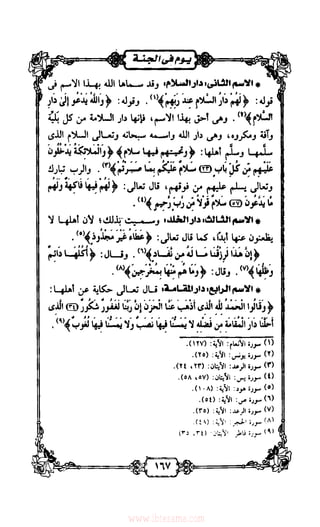 يوم فى الجنة
* الاسم الثانى: دار السلام: وقد سماها الله بهذا الاسم فى
قوله: ﴿لَهُمْ دَارُ السَّلامِ عِندَ رَبِّهِمْ﴾(١). وقوله: ﴿وَاللَّهُ يَدْعُو إِلَىٰ دَارِ
السَّلامِ﴾(٢). وهى أحق بهذا الاسم، فإنها دار السلامة من كل بلية
وآفة ومكروه، وهى دار الله واسمه سبحانه وتعالى السلام الذى
سلمها وسلم أهلها: ﴿وَتَحِيَّتُهُمْ فِيهَا سَلامٌ﴾ ﴿وَالْمَلائِكَةُ يَدْخُلُونَ
عَلَيْهِم مِّن كُلِّ بَابٍ (٢٣) سَلامٌ عَلَيْكُم بِمَا صَبَرْتُمْ﴾(٣). والرب تبارك
وتعالى يسلم عليهم من فوقهم، قال تعالى: ﴿لَهُمْ فِيهَا فَاكِهَةٌ وَلَهُم
مَّا يَدَّعُونَ (٥٧) سَلامٌ قَوْلاً مِّن رَّبٍّ رَّحِيمٍ﴾(٤).
* الاسم الثالث: دار الخلد: وسميت بذلك؛ لأن أهلها لا
يظعنون عنها أبدًا، كما قال تعالى: ﴿عَطَاءً غَيْرَ مَجْذُوذٍ﴾(٥).
﴿إِنَّ هَذَا لَرِزْقُنَا مَا لَهُ مِن نَّفَادٍ﴾(٦). وقال: ﴿أُكُلُهَا دَائِمٌ
وَظِلُّهَا﴾(٧). وقال: ﴿وَمَا هُم مِّنْهَا بِمُخْرَجِينَ﴾(٨)
* الاسم الرابع: دار المقامة: قال تعالى حكاية عن أهلها:
﴿وَقَالُوا الْحَمْدُ لِلَّهِ الَّذِي أَذْهَبَ عَنَّا الْحَزَنَ إِنَّ رَبَّنَا لَغَفُورٌ شَكُورٌ (٣٤) الَّذِي
أَحَلَّنَا دَارَ الْمُقَامَةِ مِن فَضْلِهِ لا يَمَسُّنَا فِيهَا نَصَبٌ وَلا يَمَسُّنَا فِيهَا لُغُوبٌ﴾(٩).
(١) سورة الأنعام: الآية: (١٢٧).
(٢) سورة يونس: الآية: (٢٥).
(٣) سورة الرعد: الآيتان: (٢٣، ٢٤).
(٤) سورة يس: الآيتان: (٥٧، ٥٨).
(٥) سورة هود: الآية: (١٠٨).
(٦) سورة ص: الآية: (٥٤).
(٧) سورة الرعد: الآية: (٣٥).
(٨) سورة الحجر: الآية: (٤٨).
(٩) سورة فاطر: الآيتان: (٣٤، ٣٥)
١٦٧
www.ibtesama.com